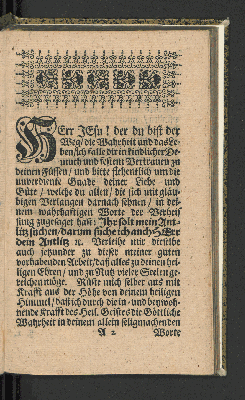 HErr JEsu! der du bist der
Weg/ die Wahrheit und das Le-
ben/ ich falle dir in kindlicher De-
muth und festem Vertrauen zu
deinen Füssen/ und bitte flehentlich um die
unverdiente Gnade deiner Liebe und
Güte/ welche du allen/ die sich mit gläu-
bigen Verlangen darnach sehnen/ in dei-
nem wahrhafftigen Worte der Verheis-
sung zugesaget hast: Ihr solt mein Ant-
litz suchen/ darum suche ich auch HErr
dein Antlitz ꝛc. Verleihe mir dieselbe
auch jetzunder zu dieser meiner guten
vorhabenden Arbeit/ daß alles zu deinen hei-
ligen Ehren/ und zu Nutz vieler Seelen ge-
reichen möge. Rüste mich selber aus mit
Krafft aus der Höhe von deinem heiligen
Himmel/ daß ich durch die in- und beywoh-
nende Krafft des Heil. Geistes die Göttliche
Wahrheit in deinem allein seligmachenden
A 2 Worte